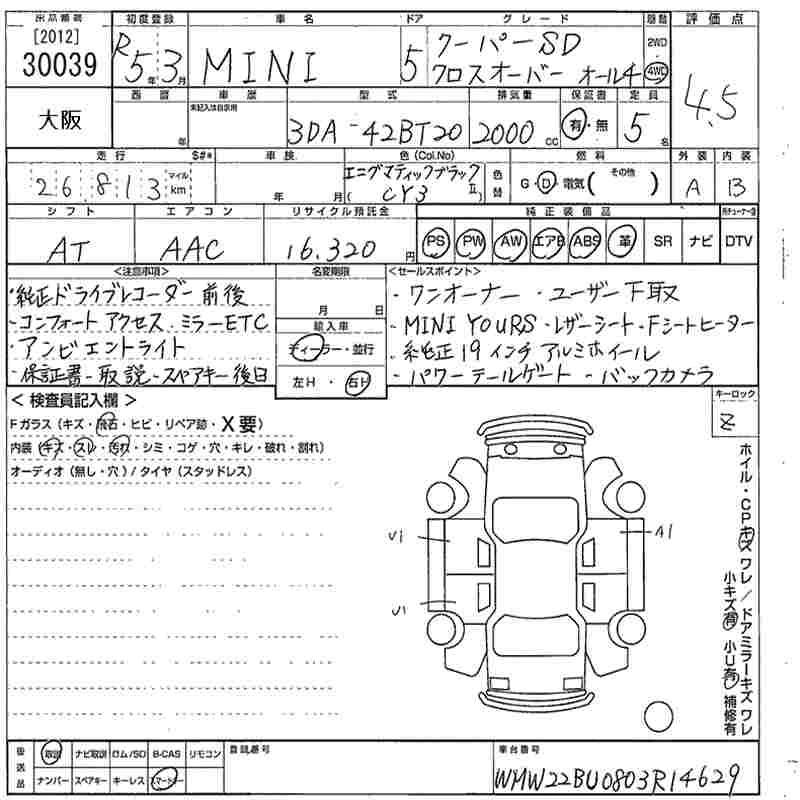 出品番号 初度登録 車名 ドア グレード 駆動 評価点
[2012] 30039 R5年3月 MINI 5 クーパーSD クロスオーバー オール4 2WD 4WD 4.5
大阪 西暦 年 車歴 未記入は自家用 型式 3DA-42BT20 排気量 2000cc 保証書 有・無 定員 5名
走行 S#* 車検 色(Col.No) 燃料 外装 内装
26813 マイル km 年 月 エニグマティックブラックⅡ (CY3) 色替 G・D・電気( その他 ) A B
シフト エアコン リサイクル預託金 純正装備品
AT AAC 16.320円 PS PW AW エアB ABS 革 SR ナビ DTV
<注意事項> 名変期限 <セールスポイント>
・純正ドライブレコーダー前後 月 日 ・ワンオーナー・ユーザー下取
・コンフォートアクセス・ミラーETC 輸入車 ・MINI YOURS・レザーシート・Fシートヒーター
・アンビエントライト ディーラー・並行 ・純正19インチアルミホイール
・保証書-取説-スペアキー後日 左H・右H ・パワーテールゲート・バックカメラ
<検査員記入欄> キーロック
Fガラス(キズ・飛石・ヒビ・リペア跡・X要) Z
内装(キズ・スレ・汚れ・シミ・コゲ・穴・キレ・破れ・割れ)
オーディオ(無し・穴)/タイヤ(スタッドレス)
U1 A1
U1
ホイル・CPキズワレ/ドアミラーキズワレ
小キズ有 小U有 補修有
後送品 取説 ナビ取説 ロム/SD B-CAS リモコン 登録番号 車台番号
ナンバー スペアキー キーレス スマートキー WMW22BU0803R14629